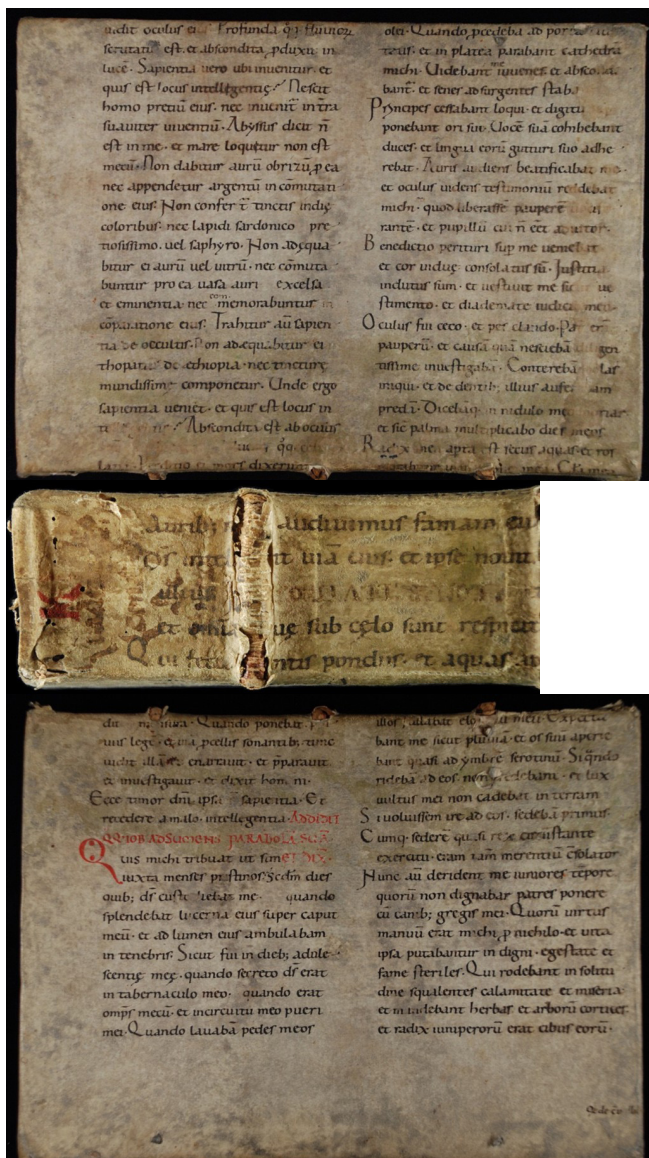 uidit oculus ei Profunda qq fluuior
scrutatꝰ est. et abscondita pduxit in
lucē. Sapientia uero ubi inuenitur. et
quis est locus intellegentię. Nescit
homo pretiū eius. nec inuenit̄ in tra
suauiter uiuentiū. Abyssus dicit n̄
est in me. et mare loquetur non est
mecū. Non dabitur aurū obrizū p ea
nec appendetur argentū in cōmutati
one eius. Non confer t̄ tinctis indię
coloribus. nec lapidi sardonico pre
tiosissimo. uel saphyro. Non adęqua
bitur ei aurū uel uitrū. nec cōmuta
buntur pro ea uasa auri excelsa
et eminentia nec memorabuntur in
cōparatione eius. Trahitur aū sapien
tia de occultis. Non adęquabitur ei
thopatiꝰ de ethiopia. nec tincturę
mundissimę componetur. Unde ergo
sapientia ueniet. et quis est locus in
Abscondita est ab oculis
qq
et mors dixerunt
olei. Quando pcedeba ad por
teus. et in platea parabant cathedrā
michi. Uidebant me iuuenes. et absco
bant̄. et senes adsurgentes staba
Principes cessabant loqui. et digitū
ponebant ori suo. Uocē suā cohibebant
duces. et lingua eorū gutturi suo adhe
rebat. Auris audiens beatificabat
et oculus uidens testimoniū reddebat
michi. quod liberassē pauperē
rantē. et pupillū cui n̄ eēt adiutor.
Benedictio perituri sup me ueniebat
et cor uiduę consolatus sū. Justitia
indutus sum. et uestiuit me sic ue
stimento. et diademate iudicio meo
Oculus fui ceco. et pes claudo. Pater
pauperū. et causā quā nesciebā gen
tissime inuestigabā. Conterebā las
iniqui. et de dentib; illius aufe am
predā. Dicebāq in nidulo meo riar
et sic palma multiplicabo dies meos
Radix mea apta est secus aquas. et ros
Auribꝰ n audiuimus famam eiꝰ
Ds int it uiā eius. et ipse nouit
et omia quę sub cęlo sunt respicit
Qui fec ntis pondus. et aquas a
Quando ponebat
uiis legē. et uiā pcellis sonantib;. tunc
uidit illā. et enarrauit. et pparauit
et inuestigauit. et dixit homini.
Ecce timor dnī ipsa ē sapientia. Et
recedere a malo. intellegentia. ADDIDIT
QQ IOB ADSUMENS PARABOLĀ SUĀ
Quis michi tribuat ut sim ET DIX.
iuxta menses pristinos. Scdm dies
quib; ds custodiebat me. quando
splendebat lucerna eius super caput
meū. et ad lumen eius ambulabam
in tenebris. Sicut fui in dieb; adule
scentię meę. quando secreto ds erat
in tabernaculo meo. quando erat
omps mecū. et in circuitu meo pueri
mei. Quando lauabā pedes meos
illos stillabat eloquiū meū. Expecta
bant me sicut pluuiā. et os suū aperie
bant quasi ad ymbrē serotinū. Si qndo
ridebā ad eos non credebant. et lux
uultus mei non cadebat in terram
Si uoluissem ire ad eos. sedebā primus.
Cumq. sederē quasi rex circūstante
exercitu. eram tam merentiū cōsolator
Nunc aū derident me iuniores tēpore
quorū non dignabar patres ponere
cū canib; gregis mei. Quorū uirtus
manuū erat michi p nichilo. et uita
ipsa putabantur indigni. egestate et
fame steriles. Qui rodebant in solitu
dine squalentes calamitate et miseria
et mandebant herbas et arborū cortices.
et radix iuniperorū erat cibus eorū.